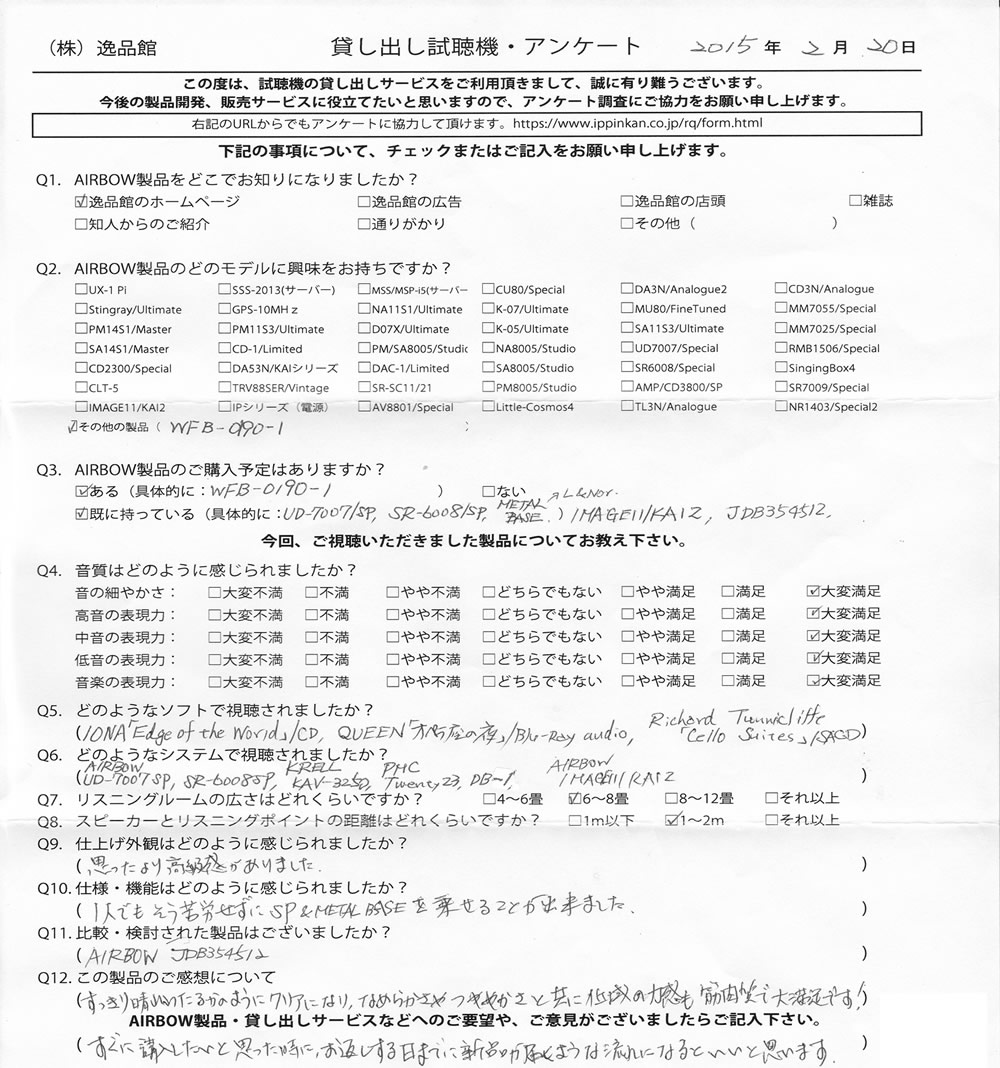 （株）逸品館 貸し出し試聴機・アンケート 2015 年 2 月 20 日
この度は、試聴機の貸し出しサービスをご利用頂きまして、誠に有り難うございます。
今後の製品開発、販売サービスに役立てたいと思いますので、アンケート調査にご協力をお願い申し上げます。
右記のURLからでもアンケートに協力して頂けます。https://www.ippinkan.co.jp/rq/form.html
下記の事項について、チェックまたはご記入をお願い申し上げます。
Q1. AIRBOW製品をどこでお知りになりましたか？
☑逸品館のホームページ □逸品館の広告 □逸品館の店頭 □雑誌
□知人からのご紹介 □通りがかり □その他（ ）
Q2. AIRBOW製品のどのモデルに興味をお持ちですか？
□UX-1 Pi □SSS-2013(サーバー) □MSS/MSP-i5(サーバー □CU80/Special □DA3N/Analogue2 □CD3N/Analogue
□Stingray/Ultimate □GPS-10MHｚ □NA11S1/Ultimate □K-07/Ultimate □MU80/FineTuned □MM7055/Special
□PM14S1/Master □PM11S3/Ultimate □D07X/Ultimate □K-05/Ultimate □SA11S3/Ultimate □MM7025/Special
□SA14S1/Master □CD-1/Limited □PM/SA8005/Studio □NA8005/Studio □UD7007/Special □RMB1506/Special
□CD2300/Special □DA53N/KAIシリーズ □DAC-1/Limited □SA8005/Studio □SR6008/Special □SingingBox4
□CLT-5 □TRV88SER/Vintage □SR-SC11/21 □PM8005/Studio □AMP/CD3800/SP □SR7009/Special
□IMAGE11/KAI2 □IPシリーズ（電源） □AV8801/Special □Little-Cosmos4 □TL3N/Analogue □NR1403/Special2
☑その他の製品（ WFB-0190-1 ）
Q3. AIRBOW製品のご購入予定はありますか？
☑ある（具体的に：WFB-0190-1 ） □ない
☑既に持っている（具体的に：UD-7007/SP, SR-6008/SP, METAL BASE. ↗L&Nor. ）IMAGE11/KAI2, JDB354512.
今回、ご視聴いただきました製品についてお教え下さい。
Q4. 音質はどのように感じられましたか？
音の細やかさ： □大変不満 □不満 □やや不満 □どちらでもない □やや満足 □満足 ☑大変満足
高音の表現力： □大変不満 □不満 □やや不満 □どちらでもない □やや満足 □満足 ☑大変満足
中音の表現力： □大変不満 □不満 □やや不満 □どちらでもない □やや満足 □満足 ☑大変満足
低音の表現力： □大変不満 □不満 □やや不満 □どちらでもない □やや満足 □満足 ☑大変満足
音楽の表現力： □大変不満 □不満 □やや不満 □どちらでもない □やや満足 □満足 ☑大変満足
Q5. どのようなソフトで視聴されましたか？
(IONA「Edge of the World」/CD, QUEEN「オペラ座の夜」/Blu-Ray audio, Richard Tunnicliffe「Cello Suites」/SACD)
Q6. どのようなシステムで視聴されましたか？
(AIRBOW UD-7007SP, SR-6008SP, KRELL KAV-3250, PMC Twenty23, DB-1, AIRBOW IMAGE11/KAI2 )
Q7. リスニングルームの広さはどれくらいですか？ □4～6畳 ☑6～8畳 □8～12畳 □それ以上
Q8. スピーカーとリスニングポイントの距離はどれくらいですか？ □1m以下 ☑1～2m □それ以上
Q9. 仕上げ外観はどのように感じられましたか？
( 思ったより高級感がありました. )
Q10. 仕様・機能はどのように感じられましたか？
( 1人でもそう苦労せずにSP&METAL BASEを乗せることが出来ました. )
Q11. 比較・検討された製品はございましたか？
( AIRBOW JDB354512 )
Q12. この製品のご感想について
(すっきり晴れわたるかのようにクリアになり,なめらかさやつややかさと共に低域の力感も筋肉質で大満足です!)
AIRBOW製品・貸し出しサービスなどへのご要望や、ご意見がございましたらご記入下さい。
( すぐに購入したいと思った時に,お返しする日までに新品が届くような流れになるといいと思います. )